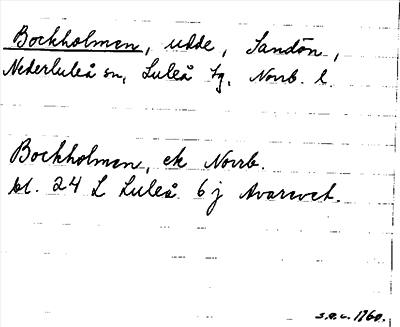 Bockholmen, udde, Sandön,
Nederluleå sn, Luleå tg, Norrb. l.
Bockholmen, ek Norrb.
bl. 24 L Luleå 6 j Avarevet.
s.a.u. 1960.